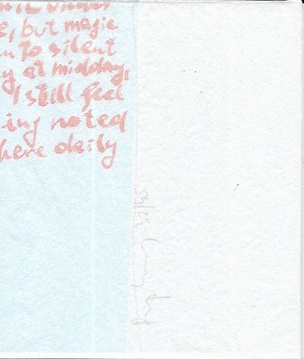 under
e, but magic
n to silent
y at midday,
I still feel
ing noted
here daily